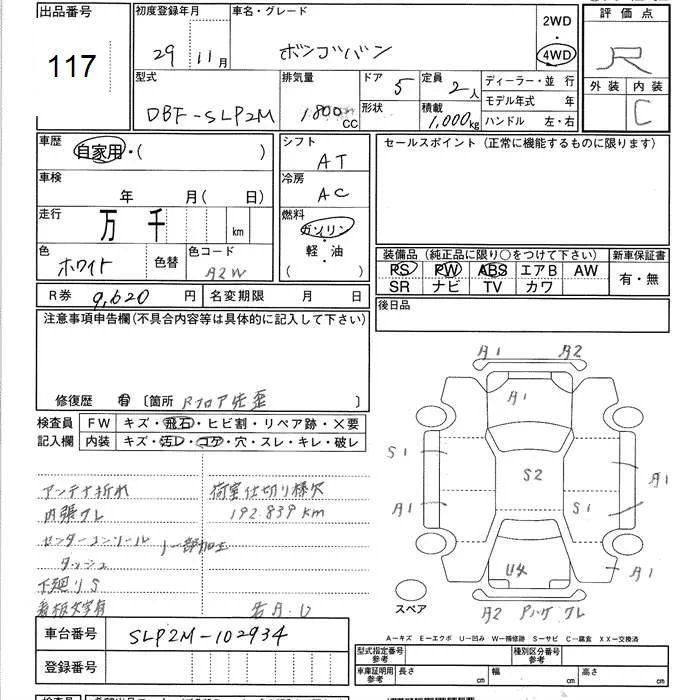 出品番号
117
初度登録年月
29 11月
車名・グレード
ボンゴバン
2WD
・
4WD
評価点
R
型式
DBF-SLP2M
排気量
1800cc
ドア
5
形状
定員
2人
積載
1,000kg
ディーラー・並行
モデル年式 年
ハンドル 左・右
外装 内装
C
車歴
自家用・( )
車検
年 月( 日)
走行
万 千 km
色
ホワイト
色替
色コード
A2W
シフト
AT
冷房
AC
燃料
ガソリン
軽・油
( )
セールスポイント(正常に機能するものに限ります)
装備品(純正品に限り○をつけて下さい)
PS PW ABS エアB AW
SR ナビ TV カワ
新車保証書
有・無
R券 9,620円
名変期限 月 日
後日品
注意事項申告欄(不具合内容等は具体的に記入して下さい)
修復歴 有 〔箇所 Rフロア先歪 〕
検査員
記入欄
FW キズ・飛石・ヒビ割・リペア跡・×要
内装 キズ・汚レ・コゲ・穴・スレ・キレ・破レ
アンテナ折れ
荷室仕切り棒欠
内張ワレ
192.839km
センターコンソール
ダッシュ
一部加工
下廻りS
看板文字有
若A.U
A1 A2
A1
S1
S2
A1
A1
S1
A1
U4
A2 Pハゲ ワレ
スペア
車台番号
SLP2M-102934
登録番号
A―キズ E―エクボ U―凹み W―補修跡 S―サビ C―腐食 XX―交換済
型式指定番号
参考
種別区分番号
参考
車庫証明用
参考
長さ cm
幅 cm
高さ cm
検査員